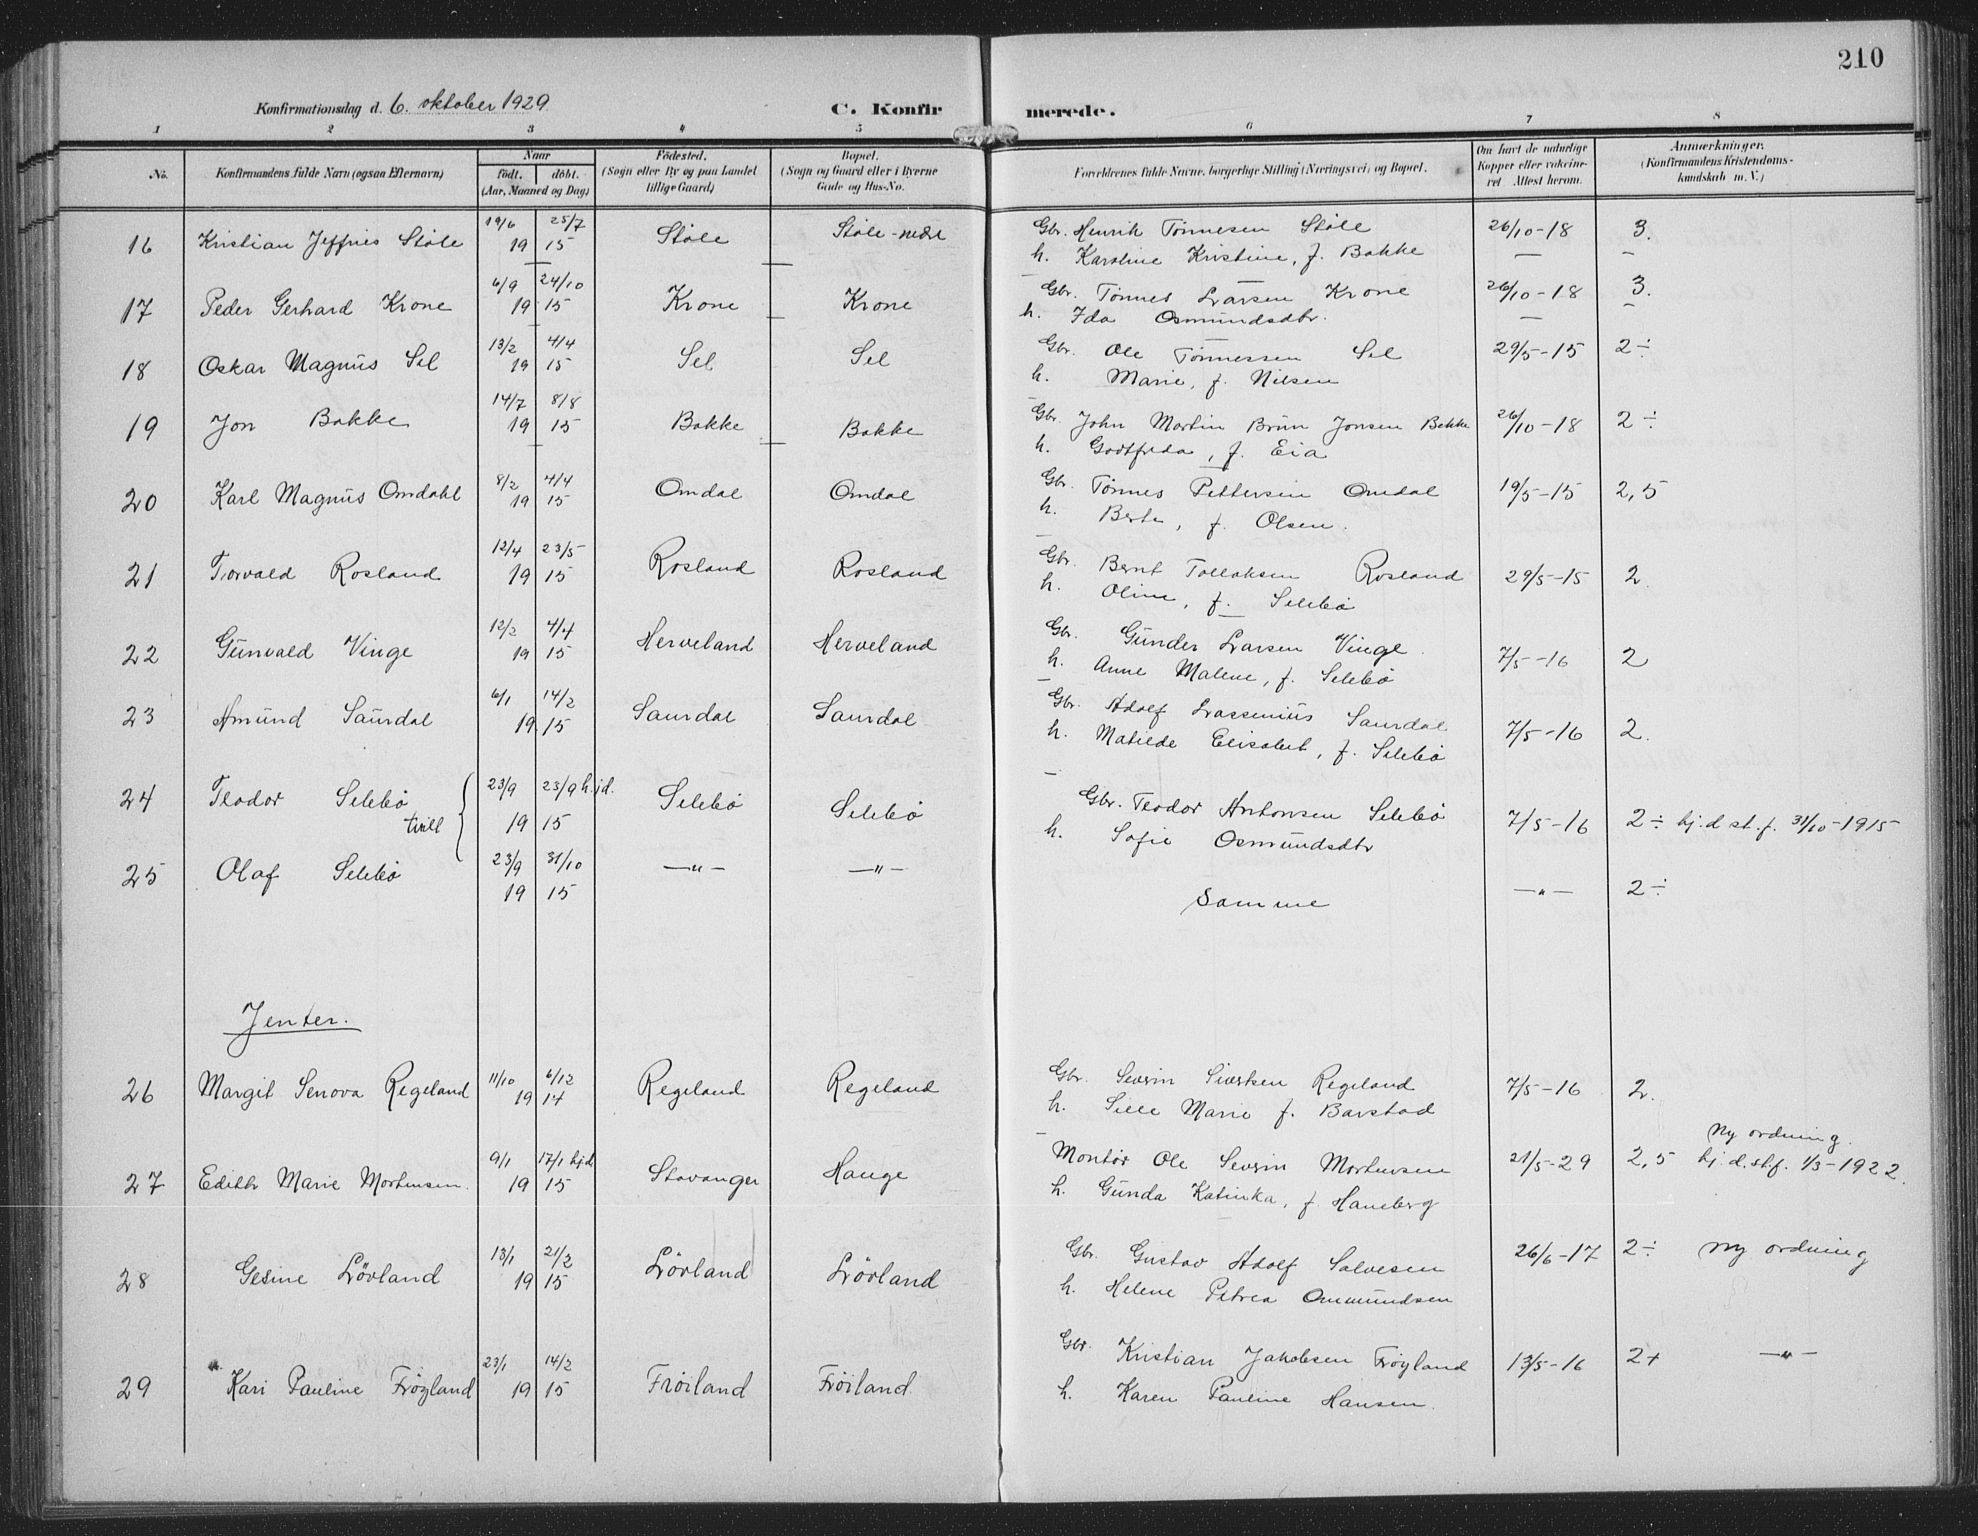 210
Konfirmationsdag d. 6. oktober 1929
C. Konfirmerede.
1 2 3 4 5 6 7 8
No. Konfirmandens fulde Navn (ogsaa Efternavn) Naar født. døbt. (Aar, Maaned og Dag) Fødested. (Sogn eller By og paa Landet tillige Gaard) Bopæl. (Sogn og Gaard eller i Byerne Gade og Hus-No. Forældrenes fulde Navne, borgerlige Stilling (Næringsvei) og Bopæl. Om havt de naturlige Kopper eller vaccineret. Attest herom. Anmærkninger. (Konfirmandens Kristendomskundskab m. V.)
16 Kristian Jeffries Støle 19/6 19 25/7 15 Støle Støle-nedre Gbr. Henrik Tønnesen Støle 26/10-18 3.
h. Karoline Kristine, f. Bakke
17 Peder Gerhard Krone 6/9 19 24/10 15 Krone Krone Gbr. Tønnes Larsen Krone 26/10-18 3.
h. Ida Osmundsdtr.
18 Oskar Magnus Sel 13/2 19 4/4 15 Sel Sel Gbr. Ole Tønnessen Sel 29/5-15 2÷
h. Marie, f. Nilsen
19 Jon Bakke 14/7 19 8/8 15 Bakke Bakke Gbr. John Martin Brun Jonsen Bakke 26/10-18 2÷
h. Godtfreda, f. Eia
20 Karl Magnus Omdahl 8/2 19 4/4 15 Omdal Omdal Gbr. Tønnes Pettersen Omdal 19/5-15 2,5
h. Berta, f. Olsen.
21 Torvald Rosland 12/4 19 23/5 15 Rosland Rosland Gbr. Bernt Tollaksen Rosland 29/5-15 2.
h. Oline, f. Selebø
22 Gunvald Vinge 12/2 19 4/4 15 Herveland Herveland Gbr. Gunder Larsen Vinge. 7/5-16 2
h. Anne Malene, f. Selebø
23 Amund Saurdal 6/1 19 14/2 15 Saurdal Saurdal Gbr. Adolf Lassenius Saurdal 7/5-16 2.
h. Matilde Elisabet, f. Selebø
24 Teodor Selebø 23/9 19 23/9 hjd. 15 Selebø Selebø Gbr. Teodor Antonsen Selebø 7/5-16 2÷ hj.d st.f. 31/10-1915
tvill h. Sofie Osmundsdtr
25 Olaf Selebø 23/9 19 31/10 15 —"— —"— Samme —"— 2÷
Jenter.
26 Margit Senova Regeland 11/10 19 6/12 14 Regeland Regeland Gbr. Severin Sivertsen Regeland 7/5-16 2.
h. Sille Marie f. Barstad
27 Edith Marie Mortensen. 9/1 19 17/1 hjd 15 Stavanger Hauge Montør Ole Severin Mortensen 21/5-29 2,5 Ny ordning. hj.d.stf. 1/3-1922.
h. Gunda Katinka, f. Haneberg
28 Gesine Løvland 13/1 19 21/2 15 Løvland Løvland Gbr. Gustav Adolf Salvesen 26/6-17 2÷ Ny ordning
h. Helene Petrea Ommundsen
29 Kari Pauline Frøyland 23/1 19 14/2 15 Frøiland Frøiland. Gbr. Kristian Jakobsen Frøyland 13/5-16 2+ —"—
h. Karen Pauline Hansen.